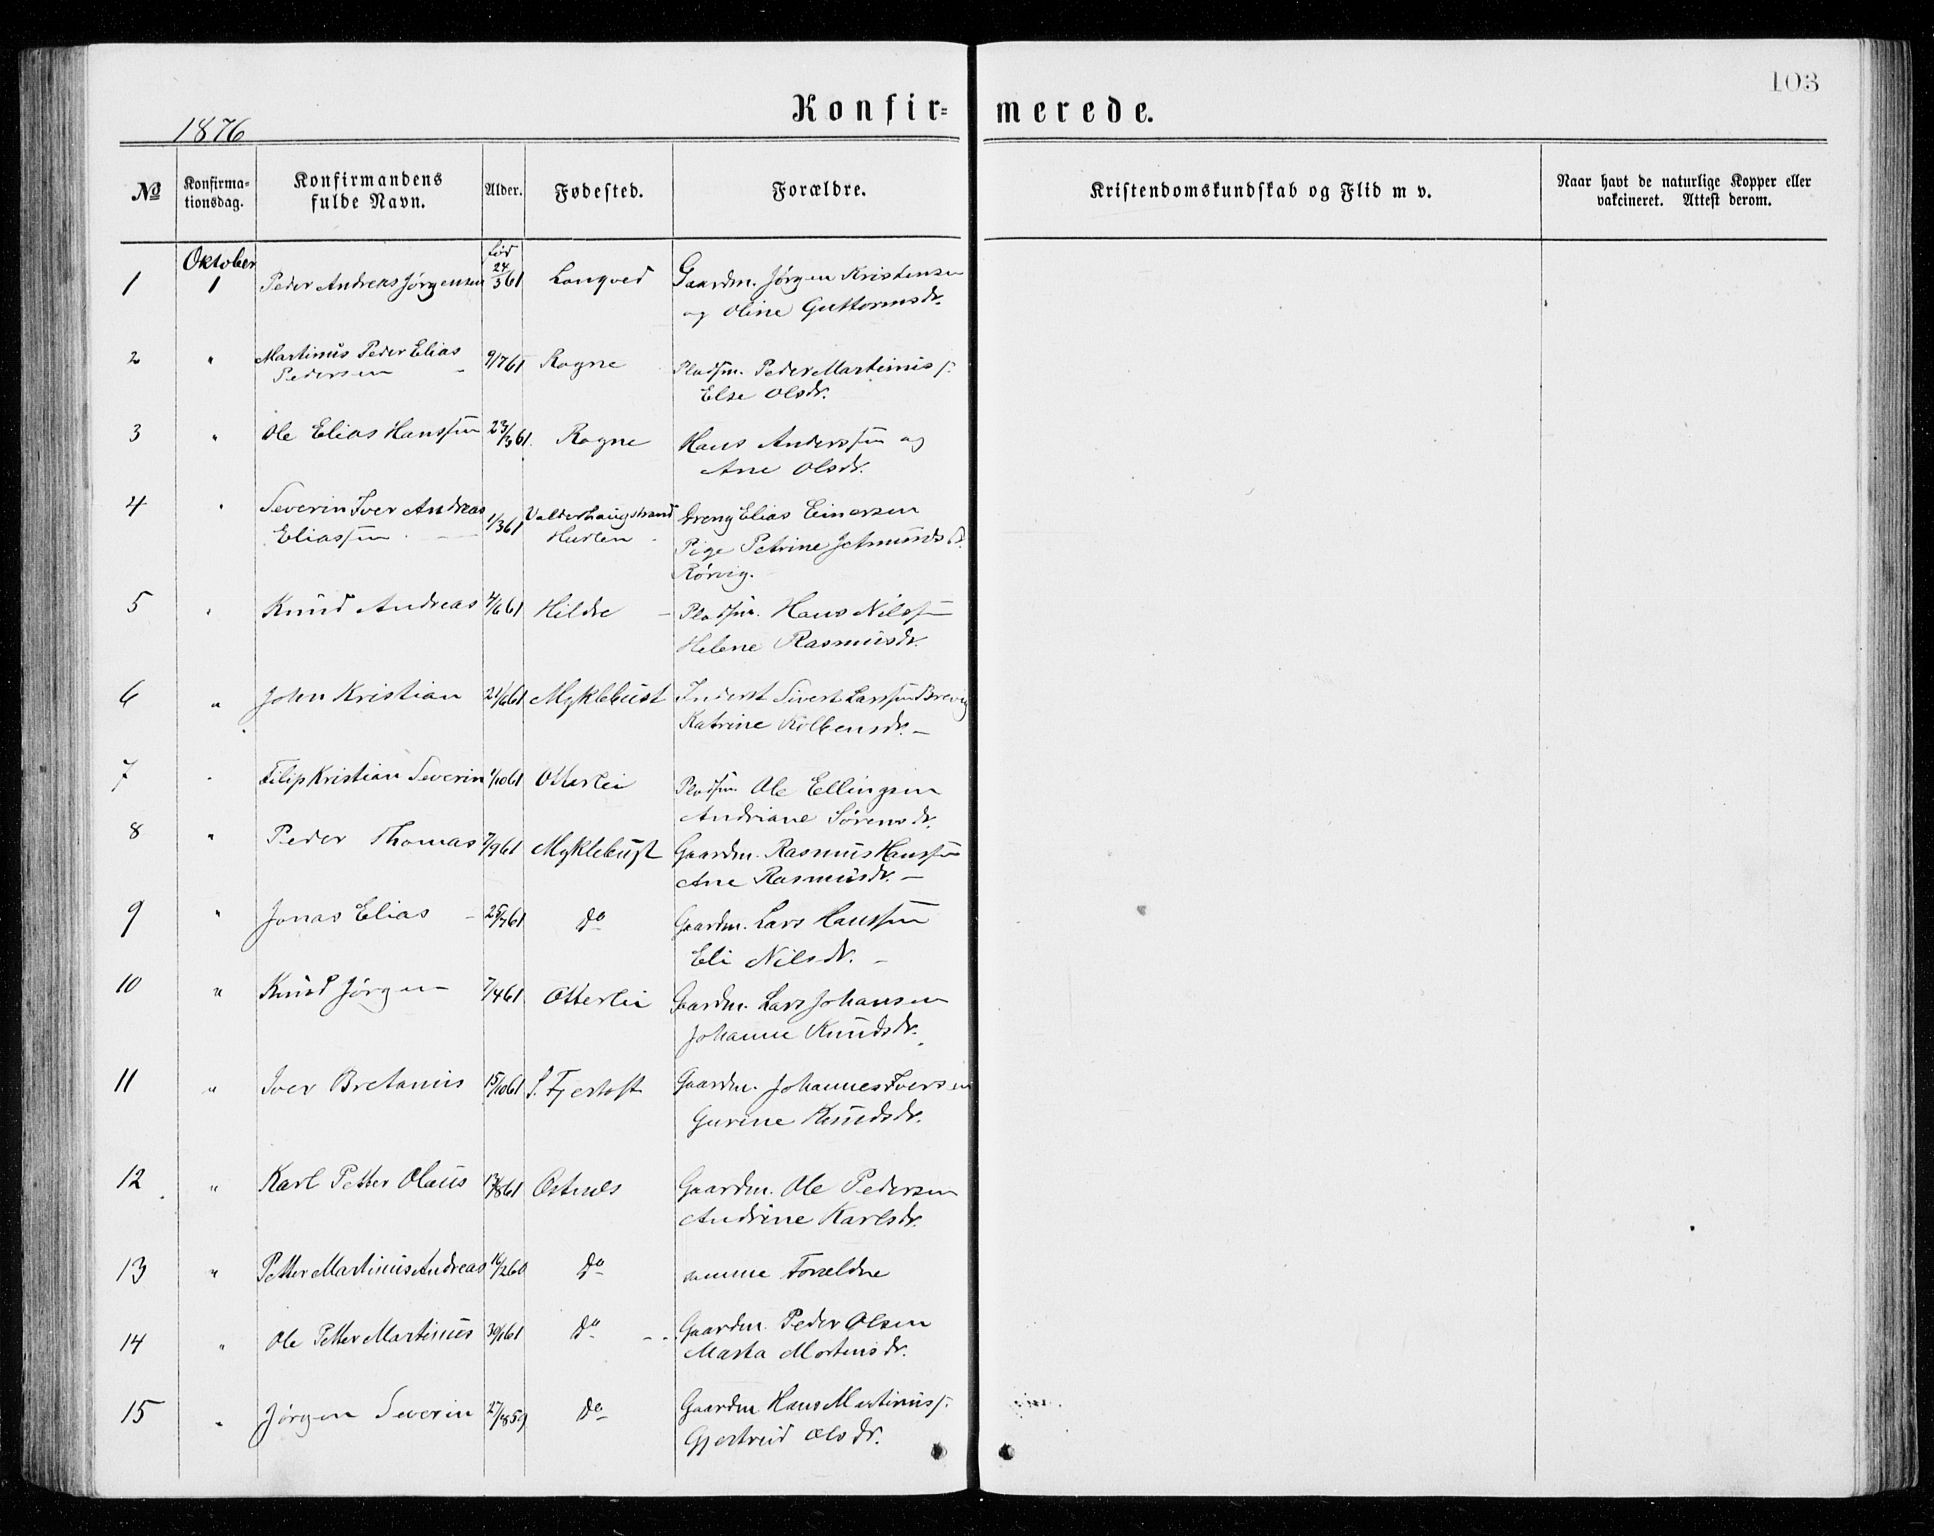 103
Konfir= merede.
1876
№ Konfirma- tionsdag. Konfirmandens fulde Navn. Alder. Fødested. Forældre. Kristendomskundskab og Flid m v. Naar havt de naturlige Kopper eller vakcineret. Attest derom.
Oktober
1 1 Peder Andreas Jørgensen 24/3 61 Longved Gaardm. Jørgen Kristensen
og Oline Guttormsdr.
2 " Martinus Peder Elias 9/7 61 Rogne Pladsm. Peder Martinuss.
Pedersen Else Olsdr.
3 " Ole Elias Hanssen 23/3 61. Rogne Hans Anderssen og
Ane Olsdr.
4 " Severin Iver Andreas 1/3 61 Valderhaugstrand Dreng Elias Einarsen
Eliassen Pige Petrine Jetmundsd.
Rørvig.
5 " Knud Andreas 4/6 61 Hildre Pladsm. Hans Nilssen
Helene Rasmusdr.
6 " John Kristian 21/6 61 Myklebust Inderst Sivert Larssen Brevig
Katrine Kolbensdr.
7 " Filip Kristian Severin 1/10 61 Otterlei Pladsm. Ole Ellingsen
Andriane Sørensdr.
8 " Peder Thomas 7/9 61 Myklebust Gaardm. Rasmus Hanssen
Ane Rasmusdr.
9 " Jonas Elias 25/7 61 Do Gaardm. Lars Hanssen
Eli Nilsdr.
10 " Knud Jørgen 7/4 61 Otterlei Gaardm. Lars Johansen
Johanne Knudsdr.
11 " Iver Bretanius 15/10 61 S. Fjertoft Gaardm. Johannes Iversen
Gurine Knudsdr.
12 " Karl Petter Olaus 13/8 61 Østnes Gaardm. Ole Pedersen
Andrine Karlsdr.
13 " Petter Martinus Andreas 16/2 60 Do samme Forældre
14 " Ole Petter Martinus 30/1 61 Do Gaardm. Peder Olsen
Marta Mortensdr.
15 " Jørgen Severin 27/8 59 Do Gaardm Hans Martinuss.
Gjertrud Olsdr.